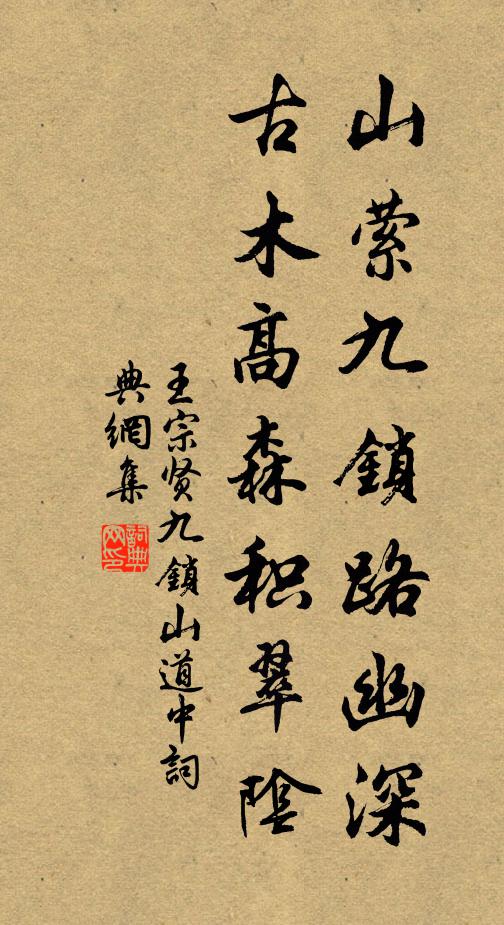 山萦九鎖路幽深
古木高森积翠陰
王宗贤九鎖山道中詞
典網集
詞典
网印